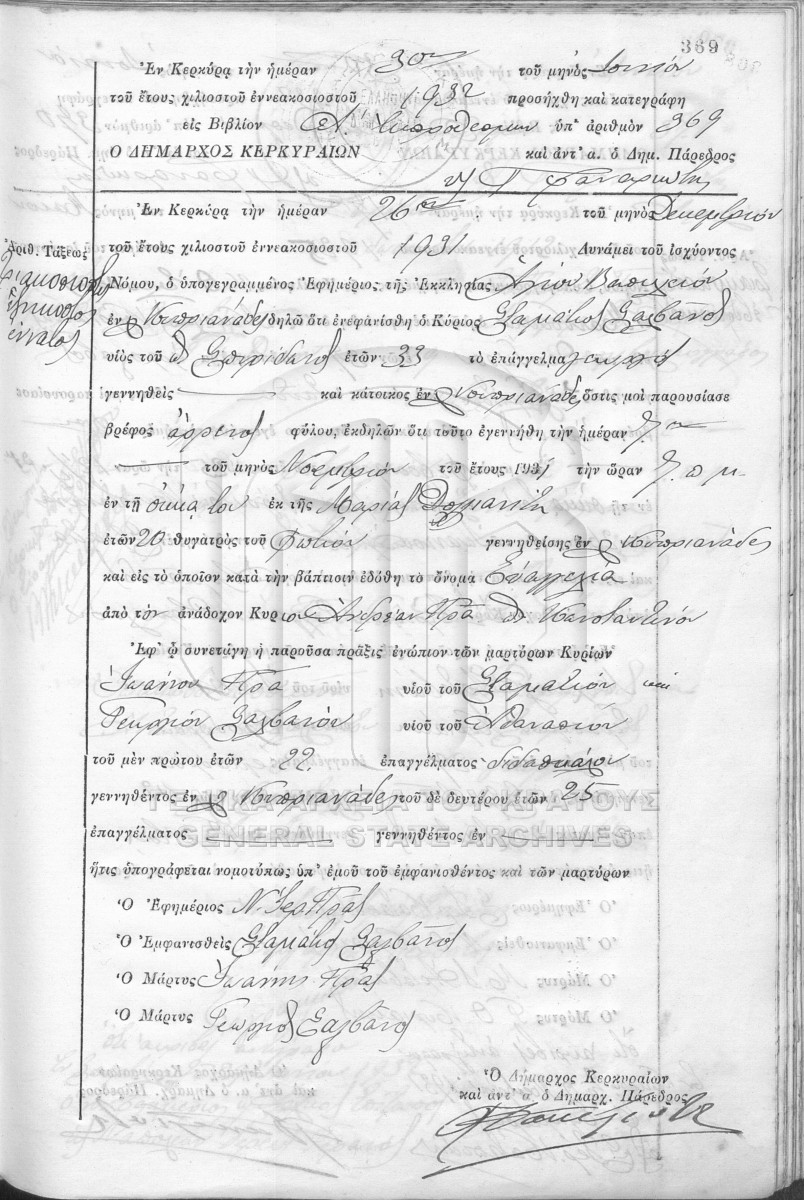 369
Ἐν Κερκύρᾳ τὴν ἡμέραν 30ην τοῦ μηνὸς Ἰουνίου
τοῦ ἔτους χιλιοστοῦ ἐννεακοσιοστοῦ 1932 προσήχθη καὶ κατεγράφη
εἰς Βιβλίον ὑπ' ἀριθμὸν 369
Ο ΔΗΜΑΡΧΟΣ ΚΕΡΚΥΡΑΙΩΝ καὶ ἀντ' α. ὁ Δημ. Πάρεδρος
Ἐν Κερκύρᾳ τὴν ἡμέραν 26ην τοῦ μηνὸς Δεκεμβρίου
Ἀριθ. Τάξεως
τριακοσιοστὸς
ἑξηκοστὸς
ἔννατος
τοῦ ἔτους χιλιοστοῦ ἐννεακοσιοστοῦ 1931 Δυνάμει τοῦ ἰσχύοντος
Νόμου, ὁ ὑπογεγραμμένος Ἐφημέριος τῆς Ἐκκλησίας Ἁγίου Βασιλείου
ἐν Κυπριανάδες δηλῶ ὅτι ἐνεφανίσθη ὁ Κύριος Σταμάτιος Σαλβάνος
υἱὸς τοῦ Σπυρίδωνος ἐτῶν 33 τὸ ἐπάγγελμα γεωργὸς
γεννηθεὶς καὶ κάτοικος ἐν Κυπριανάδες ὅστις μοὶ παρουσίασε
βρέφος ἄρρενος φύλου, ἐκδηλῶν ὅτι τοῦτο ἐγεννήθη τὴν ἡμέραν 7ην
τοῦ μηνὸς Νοεμβρίου τοῦ ἔτους 1931 τὴν ὥραν 7 π μ
ἐν τῇ οἰκίᾳ του ἐκ τῆς Μαρίας
ἐτῶν 20 θυγατρὸς τοῦ Φωτίου γεννηθείσης ἐν Κυπριανάδες
καὶ εἰς τὸ ὁποῖον κατὰ τὴν βάπτισιν ἐδόθη τὸ ὄνομα Εὐαγγελία
ἀπὸ τὸν ἀνάδοχον Κύριον Ἀνδρέαν Πρᾶ Κωνσταντίνου
Ἐφ' ᾧ συνετάγη ἡ παροῦσα πρᾶξις ἐνώπιον τῶν μαρτύρων Κυρίων
Ἰωάννου Πρᾶ υἱοῦ τοῦ Σταματίου καὶ
Γεωργίου Σαλβάνου υἱοῦ τοῦ Ἀθανασίου
τοῦ μὲν πρώτου ἐτῶν 22 ἐπαγγέλματος διδασκάλου
γεννηθέντος ἐν Κυπριανάδες τοῦ δὲ δευτέρου ἐτῶν 25
ΓΕΝΙΚΑ ΑΡΧΕΙΑ ΤΟΥ ΚΡΑΤΟΥΣ
GENERAL STATE ARCHIVES
ἐπαγγέλματος γεννηθέντος ἐν
ἥτις ὑπογράφεται νομοτύπως ὑπ' ἐμοῦ τοῦ ἐμφανισθέντος καὶ τῶν μαρτύρων
Ὁ Ἐφημέριος Ν. Ἱερ. Πρᾶς
Ὁ Ἐμφανισθεὶς Σταμάτιος Σαλβάνος
Ὁ Μάρτυς Ἰωάννης Πρᾶς
Ὁ Μάρτυς Γεώργιος Σαλβάνος
Ὁ Δήμαρχος Κερκυραίων
καὶ ἀντ' α ὁ Δημαρχ. Πάρεδρος